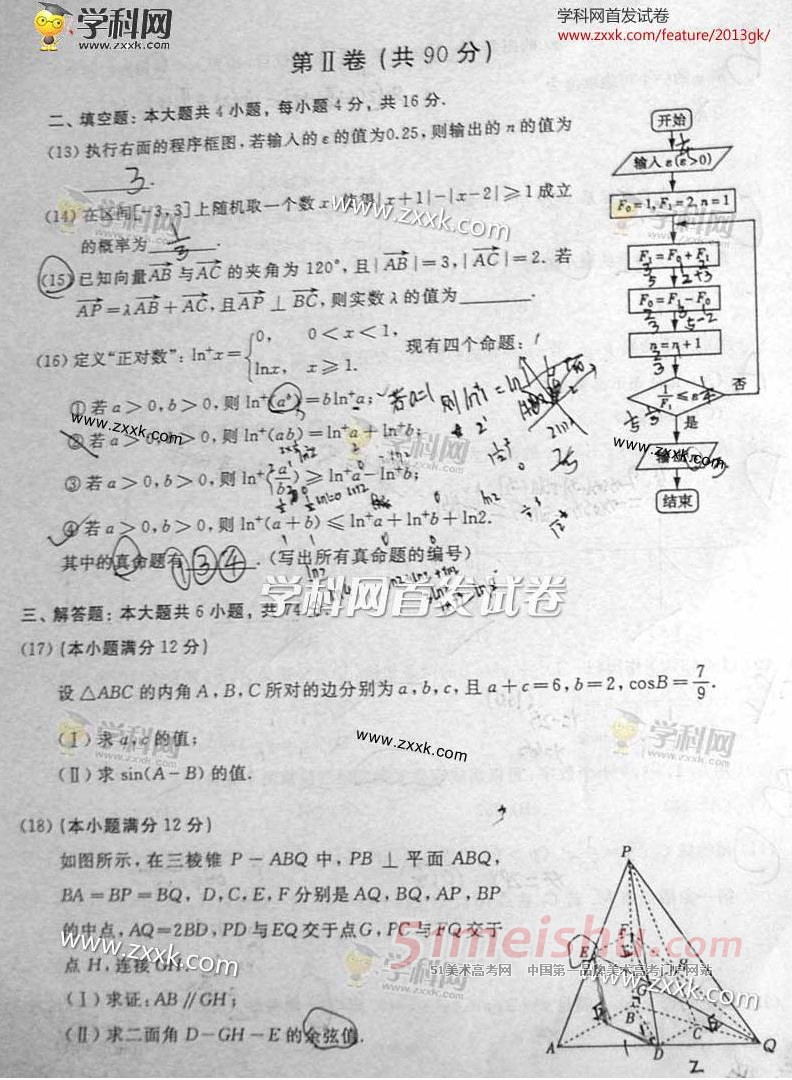 学科网
www.zxxk.com
学科网首发试卷
www.zxxk.com/feature/2013gk/
第Ⅱ卷(共90分)
二、填空题:本大题共4小题,每小题4分,共16分.
(13)执行右面的程序框图,若输入的ε的值为0.25,则输出的n的值为
3.
(14)在区间[-3,3]上随机取一个数x,使得|x+1|-|x-2|≥1成立
的概率为 1/3 .
(15)已知向量AB与AC的夹角为120°,且|AB|=3,|AC|=2.若
AP=λAB+AC,且AP⊥BC,则实数λ的值为______.
(16)定义“正对数”:ln⁺x={0, 0<x<1,
lnx, x≥1.
现有四个命题:
①若a>0,b>0,则ln⁺(aᵇ)=bln⁺a;
若a=1 则ln⁺1=ln1
②若a>0,b>0,则ln⁺(ab)=ln⁺a+ln⁺b;
③若a>0,b>0,则ln⁺(a/b)≥ln⁺a-ln⁺b;
④若a>0,b>0,则ln⁺(a+b)≤ln⁺a+ln⁺b+ln2.
其中的真命题有①③④.(写出所有真命题的编号)
学科网首发试卷
三、解答题:本大题共6小题,共74
(17)(本小题满分12分)
设△ABC的内角A,B,C所对的边分别为a,b,c,且a+c=6,b=2,cosB=7/9.
(Ⅰ)求a,c的值;
(Ⅱ)求sin(A-B)的值.
www.zxxk.com
学科网
(18)(本小题满分12分)
如图所示,在三棱锥P-ABQ中,PB⊥平面ABQ,
BA=BP=BQ,D,C,E,F分别是AQ,BQ,AP,BP
的中点,AQ=2BD,PD与EQ交于点G,PC与FQ交于
点H,连接GH.
(Ⅰ)求证:AB∥GH;
(Ⅱ)求二面角D-GH-E的余弦值.
www.zxxk.com
学科网
51meishu.com
51美术高考网 中国第一品牌美术高考门户网站
开始
输入ε(ε>0)
F₀=1,F₁=2,n=1
F₁=F₀+F₁
F₀=F₁-F₀
n=n+1
1/F₁≤ε
否
是
输出n
结束
P
E
F
G
H
B
C
A
D
Q